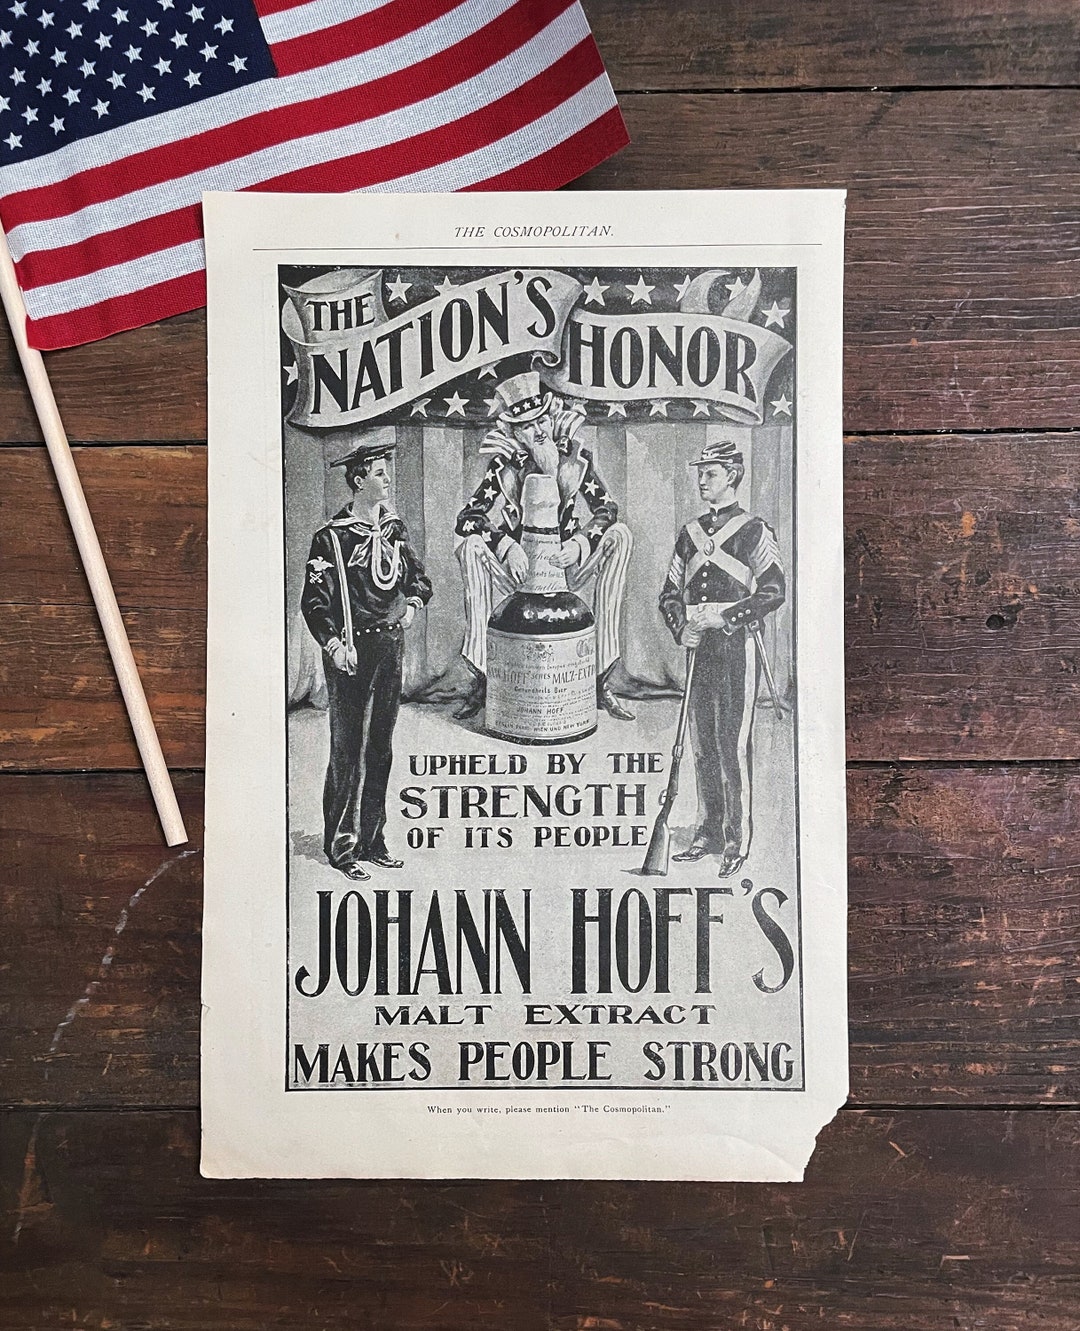 THE COSMOPOLITAN.
THE
NATION'S
HONOR
HOFF'SCHES MALZ-EXT
JOHANN HOFF
UPHELD BY THE
STRENGTH
OF ITS PEOPLE
JOHANN HOFF'S
MALT EXTRACT
MAKES PEOPLE STRONG
When you write, please mention "The Cosmopolitan."